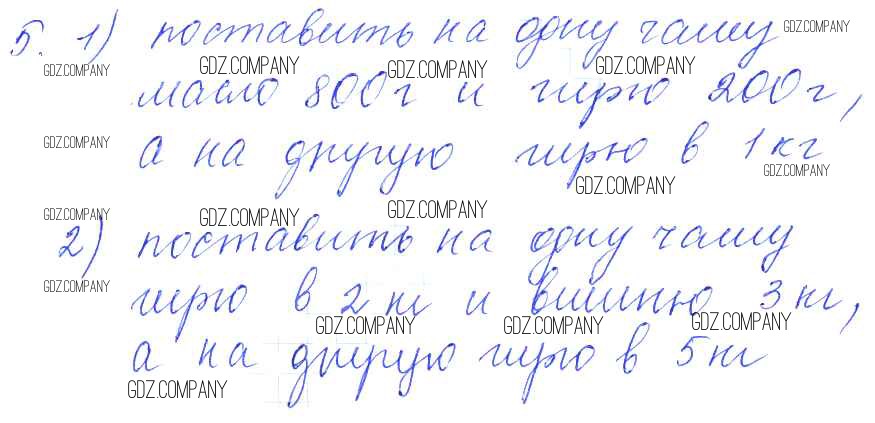 5. 1) поставить на одну чашу GDZ.COMPANY
GDZ.COMPANY GDZ.COMPANY GDZ.COMPANY GDZ.COMPANY
масло 800г и гирю 200г,
GDZ.COMPANY
а на другую гирю в 1 кг
GDZ.COMPANY GDZ.COMPANY
GDZ.COMPANY GDZ.COMPANY GDZ.COMPANY
2) поставить на одну чашу
GDZ.COMPANY
гирю в 2 кг и вишню 3 кг,
GDZ.COMPANY GDZ.COMPANY GDZ.COMPANY
а на другую гирю в 5 кг
GDZ.COMPANY